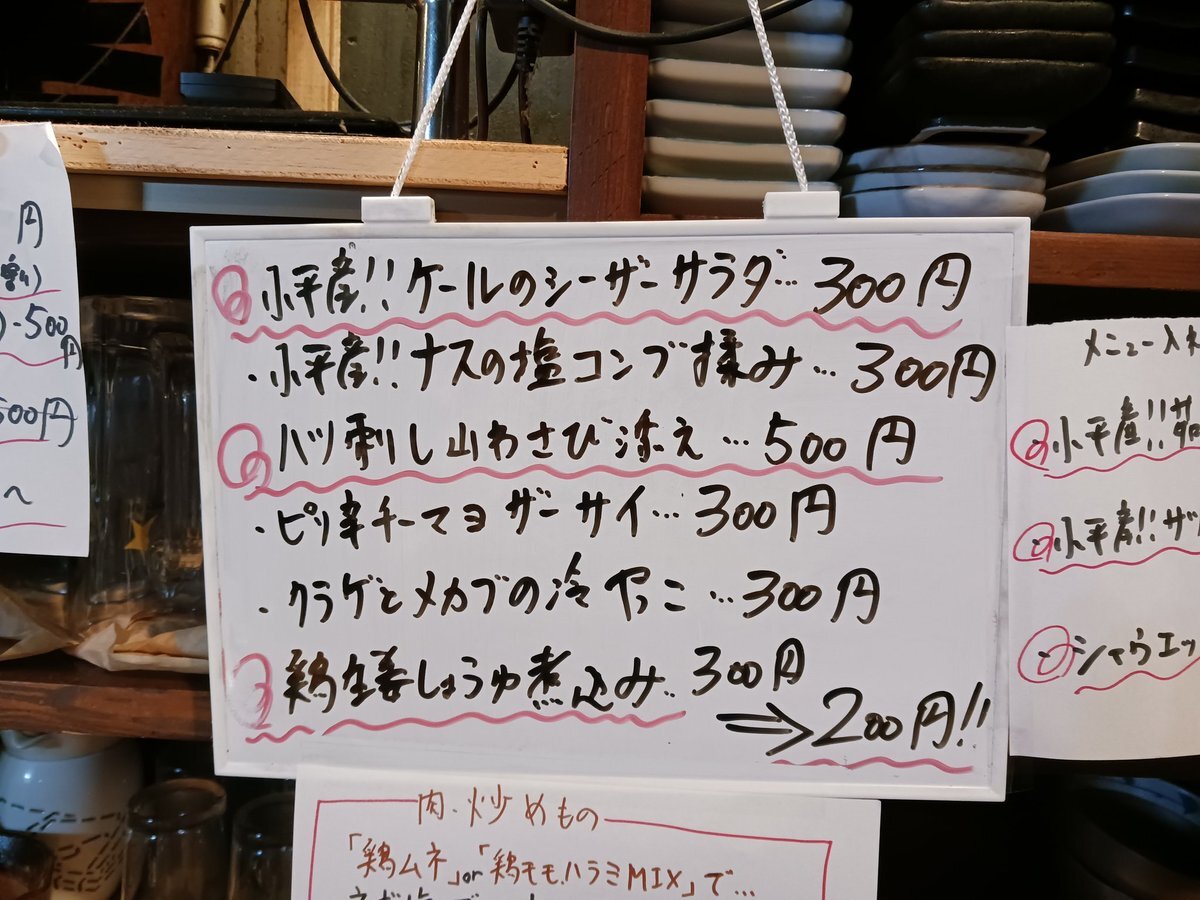 円
-500円
500円
へ
小平産!!ケールのシーザーサラダ…300円
・小平産!!ナスの塩コンブ揉み…300円
ハツ刺し山わさび添え…500円
・ピリ辛チーマヨザーサイ…300円
・クラゲとメカブの冷やっこ…300円
鶏生姜しょうゆ煮込み…300円
⇒200円!!
メニュー入れ
小平産!!
小平産!!ザ
シャウエッ
肉・炒めもの
「鶏ムネ」or「鶏モモ.ハラミMIX」で…